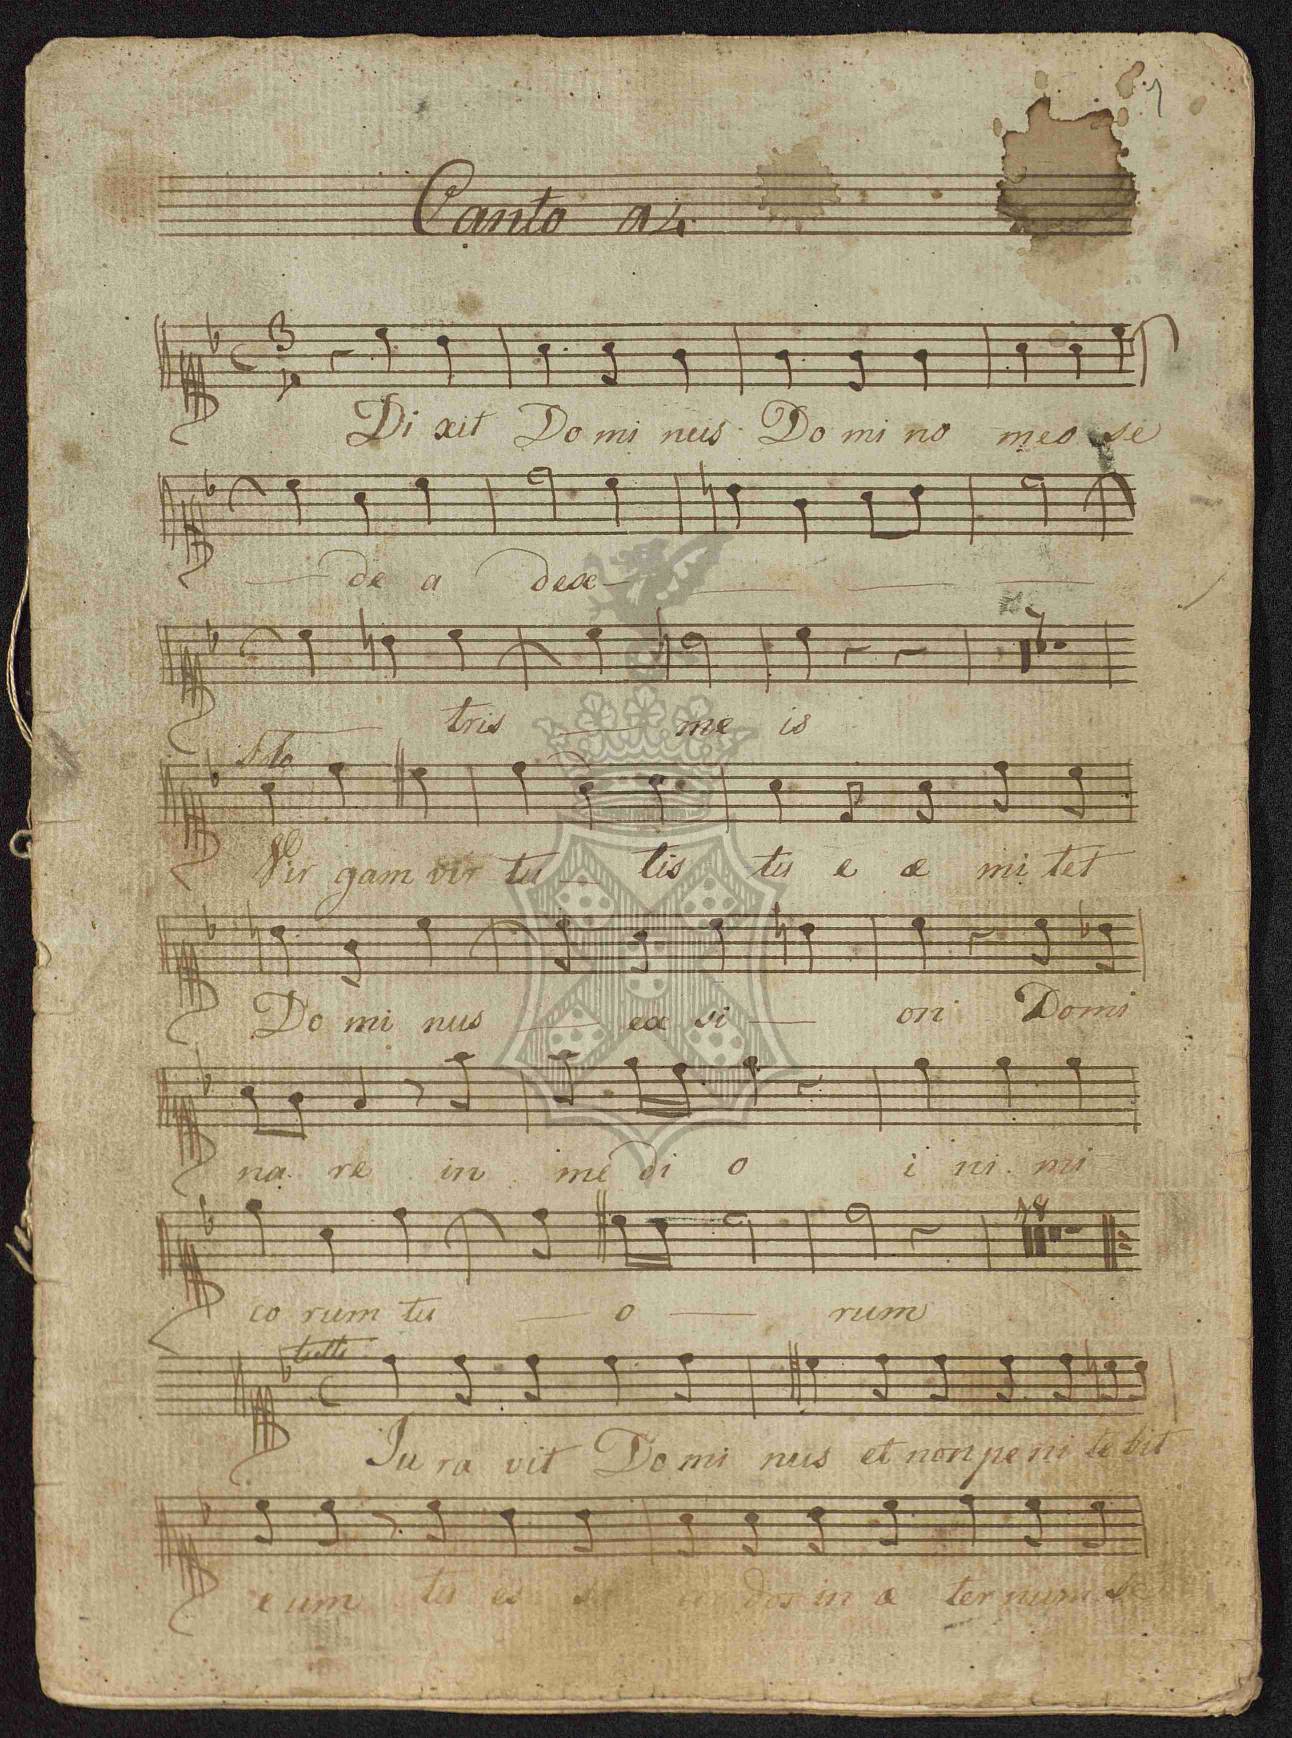 1
Canto a4
Di xit Do mi nus Do mi no meo se
de a dex
tris me is
Solo
Vir gam vir tu tis tu e æ mi tet
Do mi nus ex si on Domi
na re in me di o i ni mi
18
co rum tu o rum
tutti
Ju ra vit Do mi nus et non pe ni te bit
e um tu es sa cer dos in æ ter num se